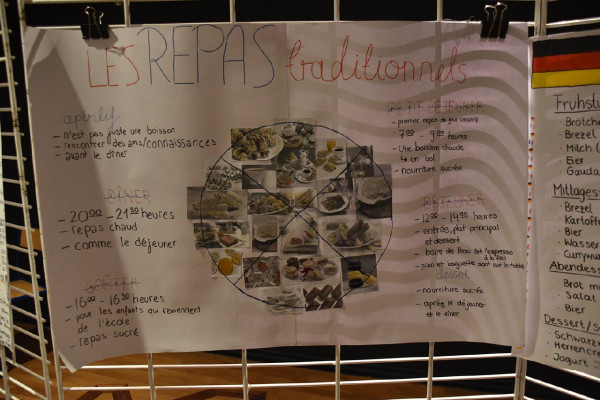 LES REPAS traditionnels
apéritif
- n'est pas juste une boisson
- rencontrer des amis/connaissances
- avant le dîner
DÎNER
- 20⁰⁰ - 21³⁰ heures
- repas chaud
- comme le déjeuner
GOÛTER
- 16⁰⁰ - 16³⁰ heures
- pour les enfants qui reviennent
de l'école
- repas sucré
PETIT DÉJEUNER
- premier repas de
- 7⁰⁰ - 9⁰⁰ heures
- une boisson chaude
↳ un bol
- nourriture sucrée
DÉJEUNER
- heures
- entrée, plat principal
et dessert
- boire de l'eau (et l'espresso
à la fin)
- pain et baguette sont sur la table
dessert
- nourriture sucrée
- après le déjeuner
et le dîner
Frühstü
· Brötch
· Brezel
· Milch (
· Eier
· Gouda
Mittages
· Brezel
· Kartoff
· Bier
· Wasser
· Currywu
Abendess
· Brot m
· Salat
· Bier
Dessert/S
· Schwarz
· Herrencre
· Jogurt